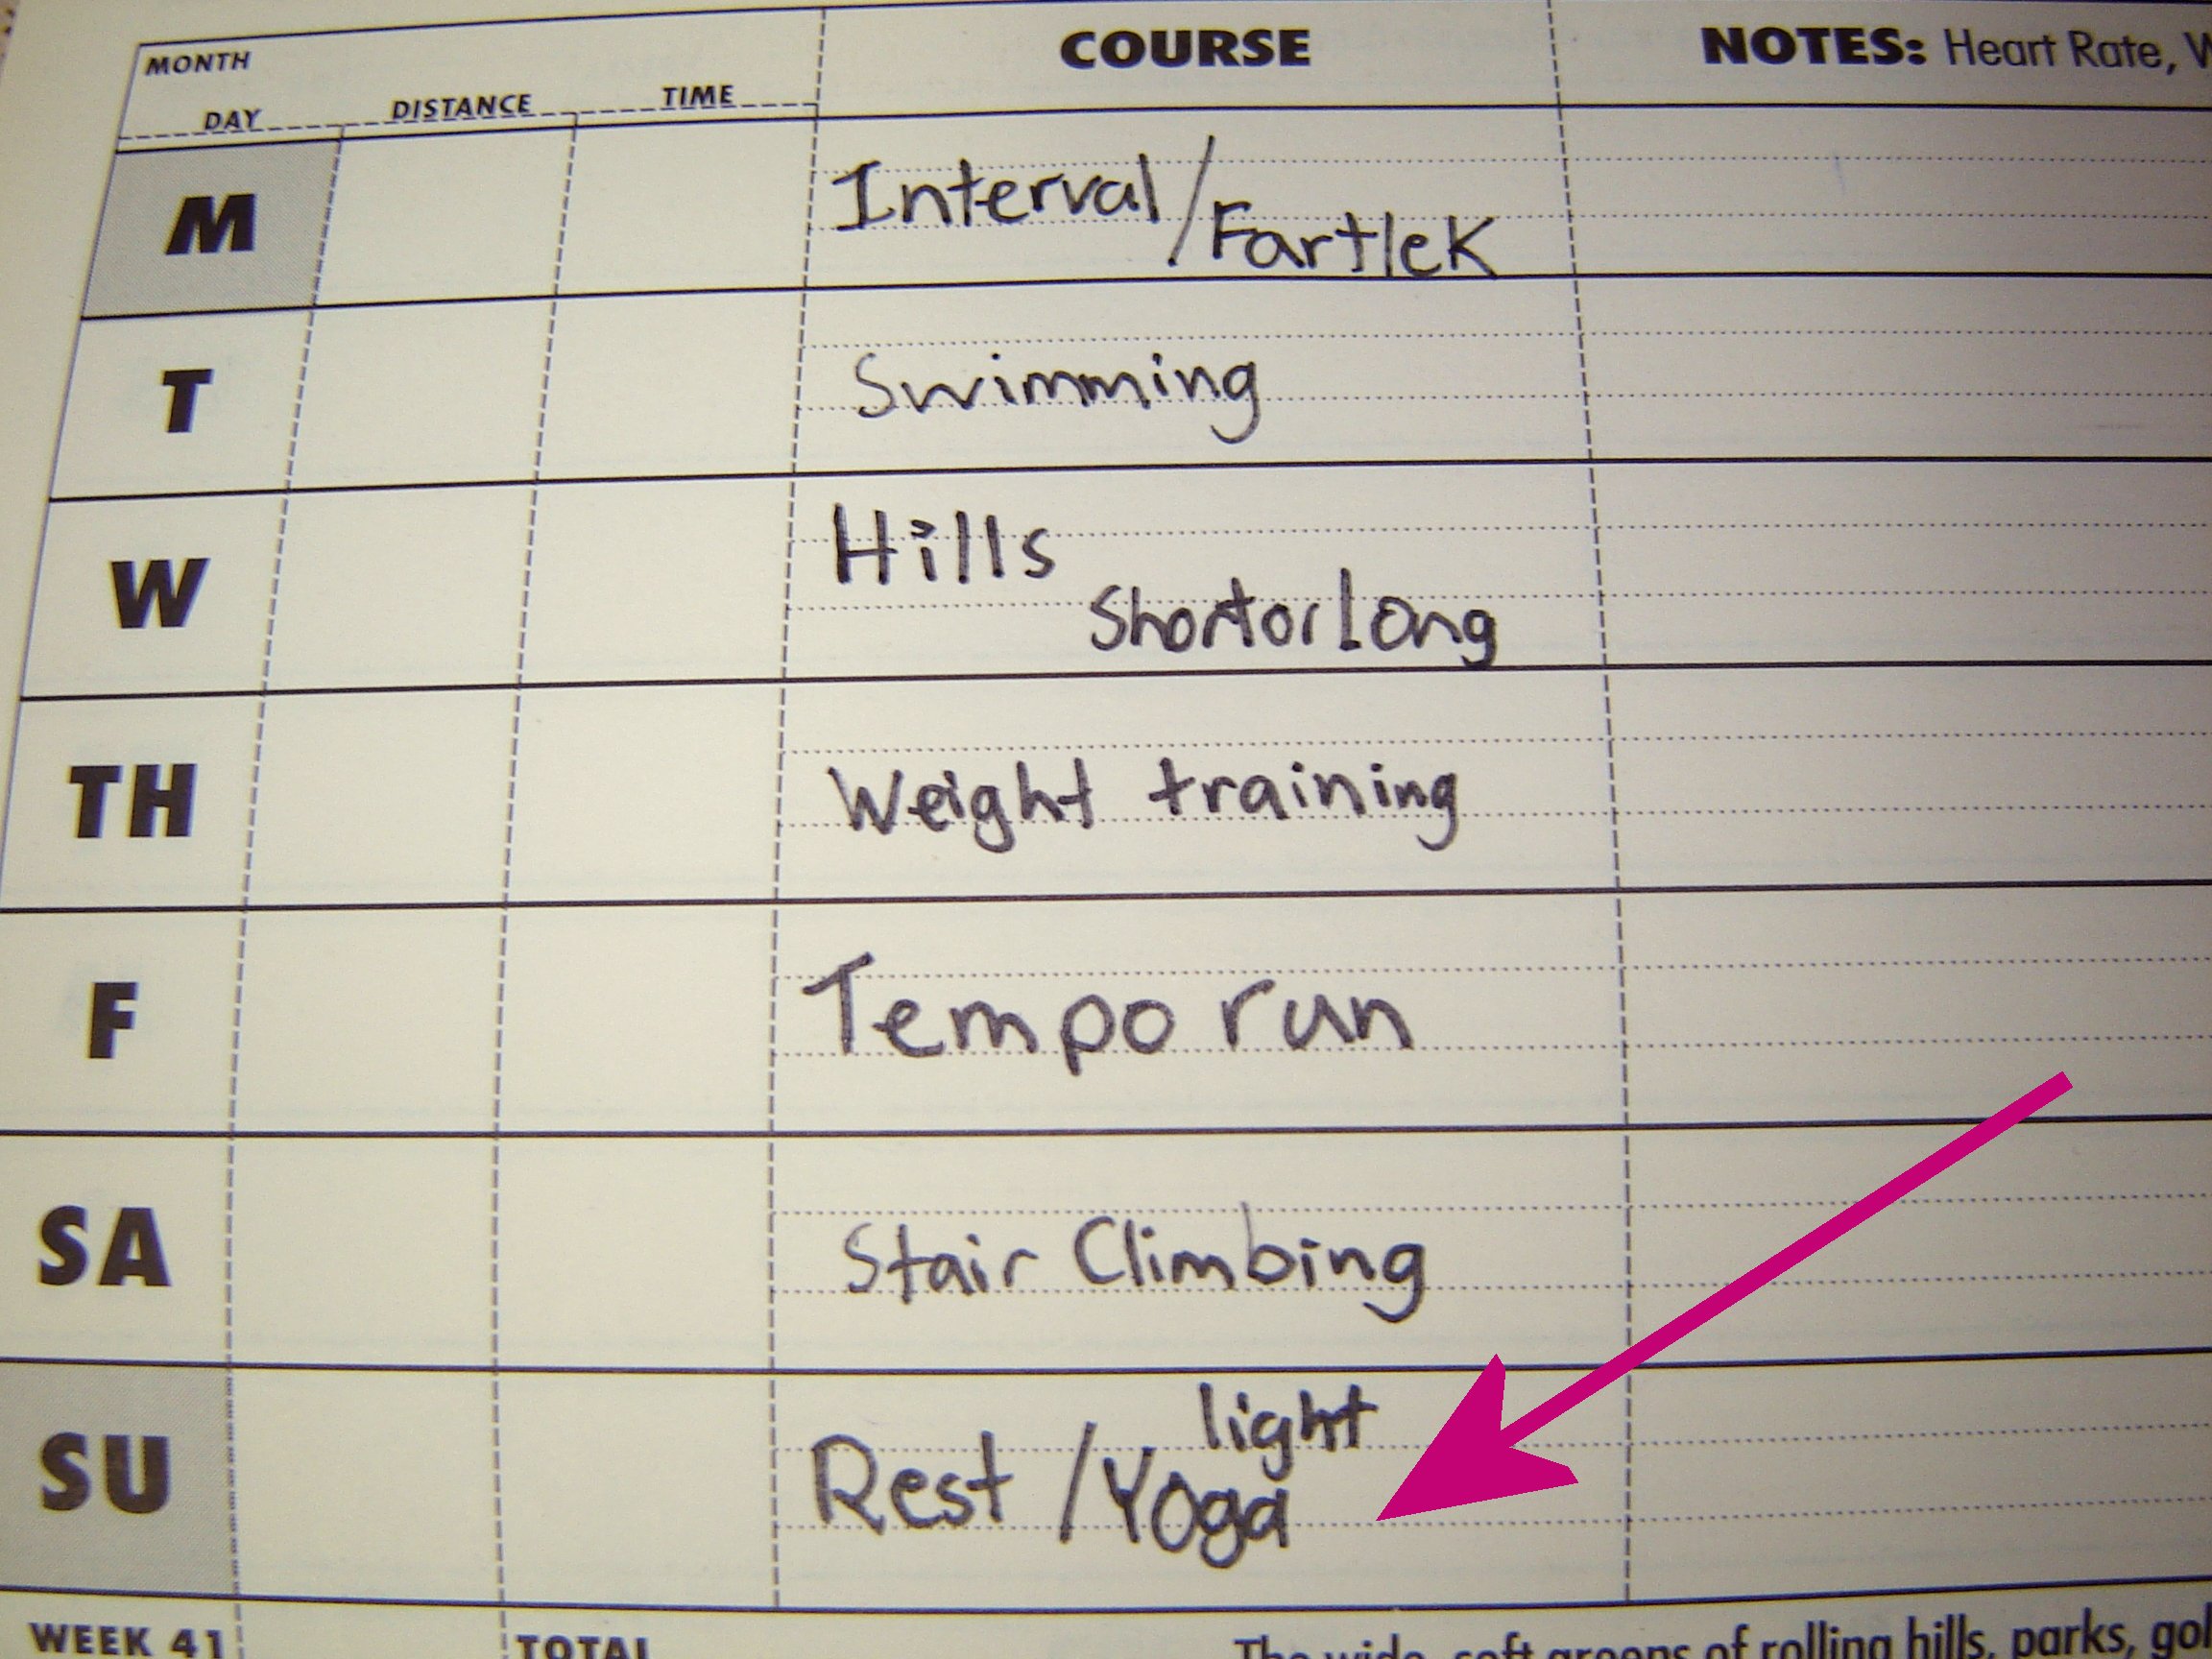 MONTH
DAY DISTANCE TIME COURSE NOTES: Heart Rate,
M Interval/Fartlek
T Swimming
W Hills
Short or long
TH Weight training
F Tempo run
SA Stair Climbing
SU Rest / light Yoga
WEEK 41 TOTAL The wide, soft greens of rolling hills, parks,